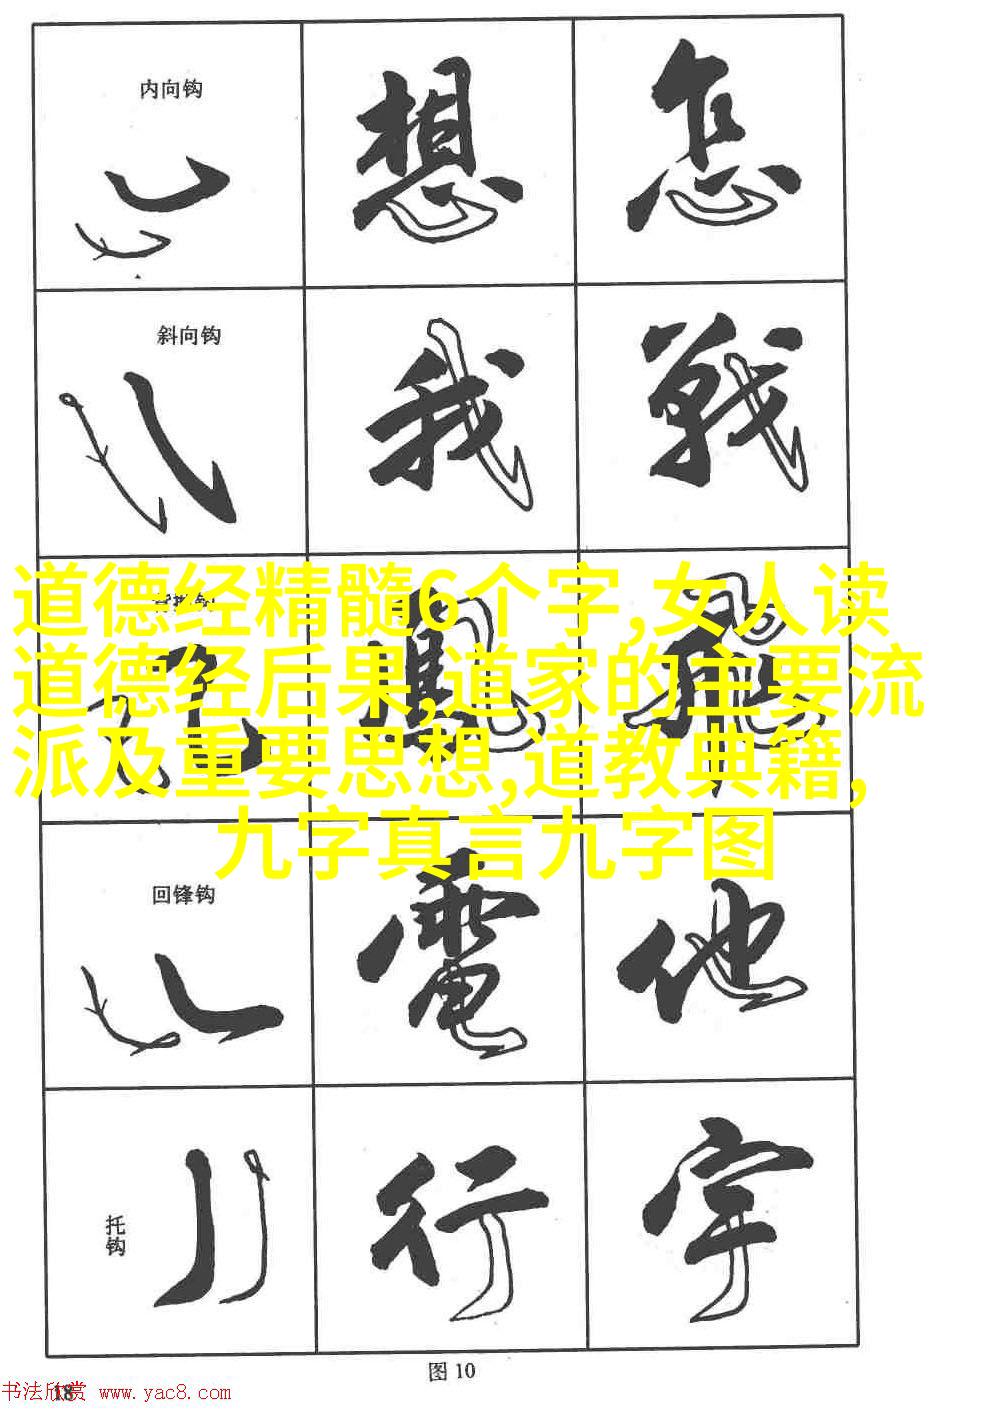 内向钩
想
怎
斜向钩
我
戰
道德经精髓6个字,女人读
道德经后果,道家的主要流
派及重要思想,道教典籍,
九字真言九字图
回锋钩
電
他
托钩
行
宇
图 10
18
书法欣赏 www.yac8.com